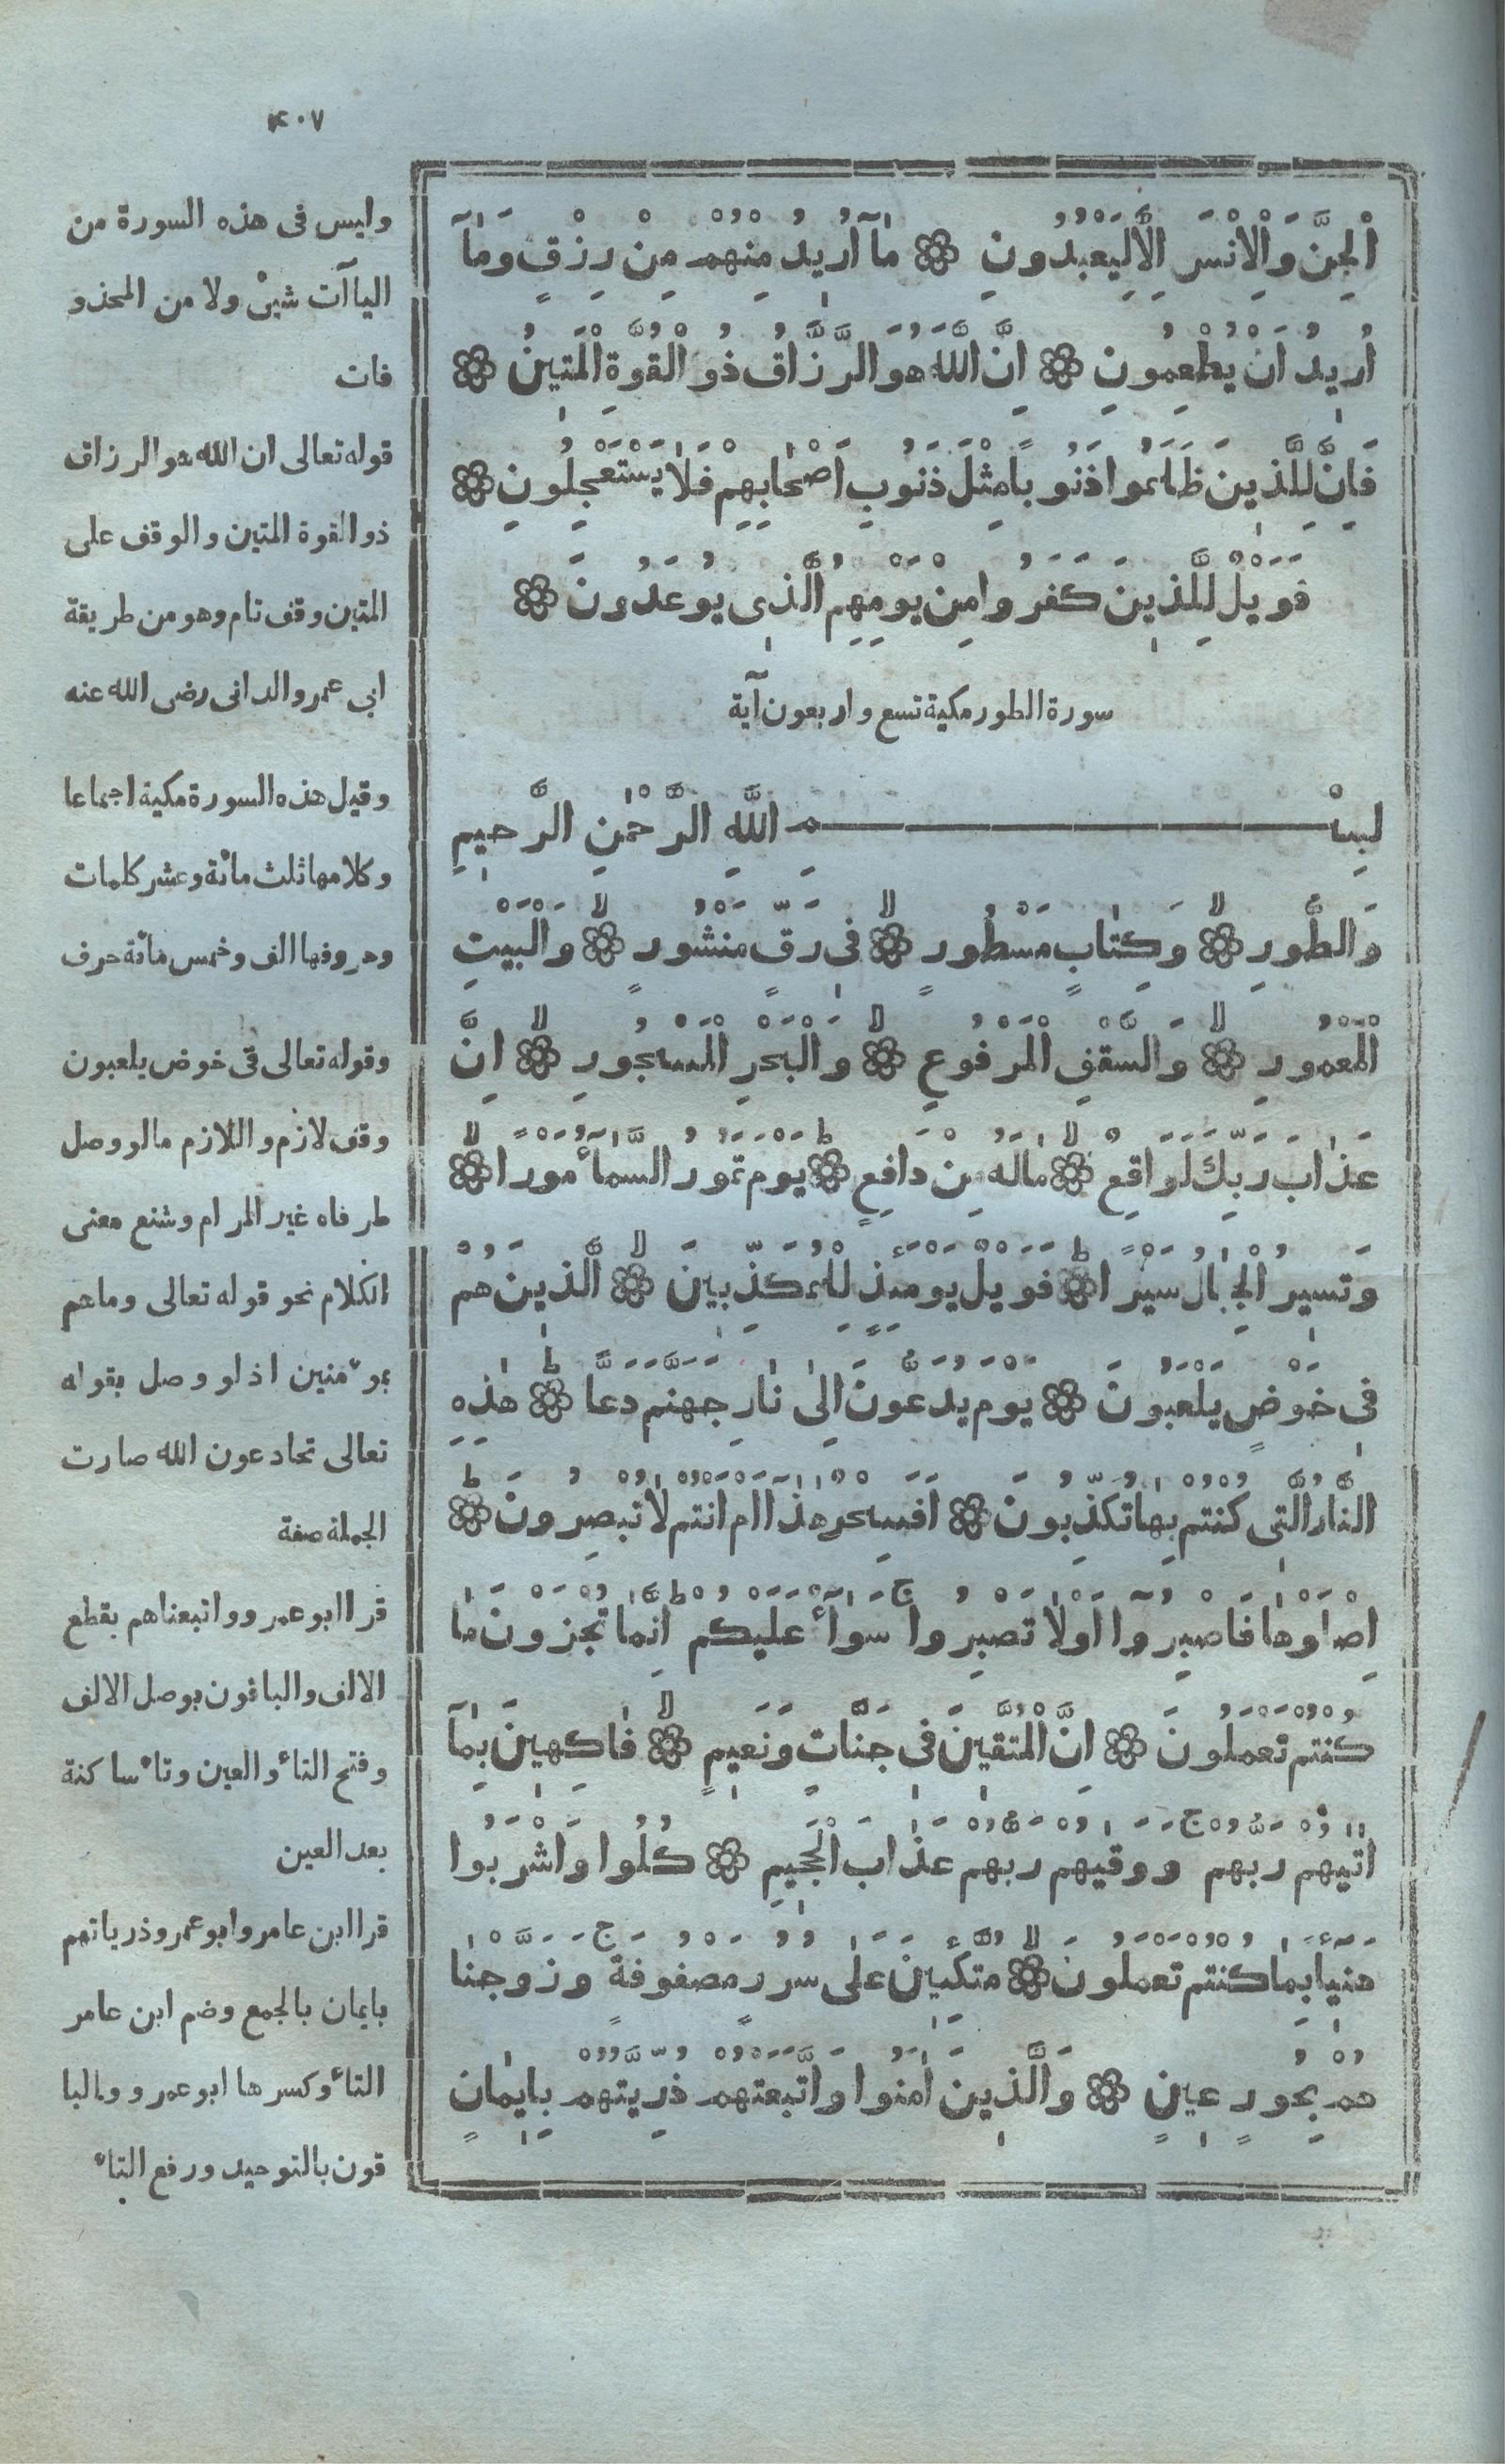 ۴۰۷
اَلْجِنَّ وَالْاِنْسَ اِلَّا لِيَعْبُدُونِ ۞ مٰآ اُرِيدُ مِنْهُمْ مِنْ رِزْقٍ وَمٰآ
اُرِيدُ اَنْ يُطْعِمُونِ ۞ اِنَّ اللّٰهَ هُوَ الرَّزَّاقُ ذُو الْقُوَّةِ الْمَتِينُ ۞
فَاِنَّ لِلَّذِينَ ظَلَمُوا ذَنُوبًا مِثْلَ ذَنُوبِ اَصْحٰابِهِمْ فَلٰا يَسْتَعْجِلُونِ ۞
فَوَيْلٌ لِلَّذِينَ كَفَرُوا مِنْ يَوْمِهِمُ الَّذِى يُوعَدُونَ ۞
سورة الطور مكية تسع واربعون آية
بِسْمِ اللّٰهِ الرَّحْمٰنِ الرَّحِيمِ
وَالطُّورِ ۞ وَكِتٰابٍ مَسْطُورٍ ۞ فِى رَقٍّ مَنْشُورٍ ۞ وَالْبَيْتِ
الْمَعْمُورِ ۞ وَالسَّقْفِ الْمَرْفُوعِ ۞ وَالْبَحْرِ الْمَسْجُورِ ۞ اِنَّ
عَذٰابَ رَبِّكَ لَوٰاقِعٌ ۞ مٰا لَهُ مِنْ دٰافِعٍ ۞ يَوْمَ تَمُورُ السَّمٰآءُ مَوْرًا ۞
وَتَسِيرُ الْجِبٰالُ سَيْرًا ۞ فَوَيْلٌ يَوْمَئِذٍ لِلْمُكَذِّبِينَ ۞ الَّذِينَ هُمْ
فِى خَوْضٍ يَلْعَبُونَ ۞ يَوْمَ يُدَعُّونَ اِلٰى نٰارِ جَهَنَّمَ دَعًّا ۞ هٰذِهِ
النَّارُ الَّتِى كُنْتُمْ بِهٰا تُكَذِّبُونَ ۞ اَفَسِحْرٌ هٰذٰآ اَمْ اَنْتُمْ لٰا تُبْصِرُونَ ۞
اِصْلَوْهٰا فَاصْبِرُوآ اَوْلٰا تَصْبِرُوا سَوٰآءٌ عَلَيْكُمْ اِنَّمٰا تُجْزَوْنَ مٰا
كُنْتُمْ تَعْمَلُونَ ۞ اِنَّ الْمُتَّقِينَ فِى جَنَّاتٍ وَنَعِيمٍ ۞ فٰاكِهِينَ بِمٰآ
اٰتٰيهُمْ رَبُّهُمْ وَوَقٰيهُمْ رَبُّهُمْ عَذٰابَ الْجَحِيمِ ۞ كُلُوا وَاشْرَبُوا
هَنِيئًا بِمٰا كُنْتُمْ تَعْمَلُونَ ۞ مُتَّكِئِينَ عَلٰى سُرُرٍ مَصْفُوفَةٍ وَزَوَّجْنٰا
هُمْ بِحُورٍ عِينٍ ۞ وَالَّذِينَ اٰمَنُوا وَاتَّبَعَتْهُمْ ذُرِّيَّتُهُمْ بِاِيمٰانٍ
وليس فى هذه السورة من
اليآآت شيئ ولا من المحذو
فات
قوله تعالى ان الله هو الرزاق
ذو القوة المتين والوقف على
المتين وقف تام وهو من طريقة
ابى عمرو الدانى رضى الله عنه
وقيل هذه السورة مكية اجماعا
وكلامها ثلث مائة وعشر كلمات
وحروفها الف وخمس مائة حرف
وقوله تعالى فى خوض يلعبون
وقف لازم واللازم مالو وصل
طرفاه غير المرام وشنع معنى
الكلام نحو قوله تعالى وماهم
بمؤمنين اذ لو وصل بقوله
تعالى يخادعون الله صارت
الجملة صفة
قرا ابو عمرو واتبعناهم بقطع
الالف والباقون بوصل الالف
وفتح التاء والعين وتاء ساكنة
بعد العين
قرا ابن عامر وابو عمرو ذرياتهم
بايمان بالجمع وضم ابن عامر
التاء وكسرها ابو عمرو والبا
قون بالتوحيد ورفع التاء